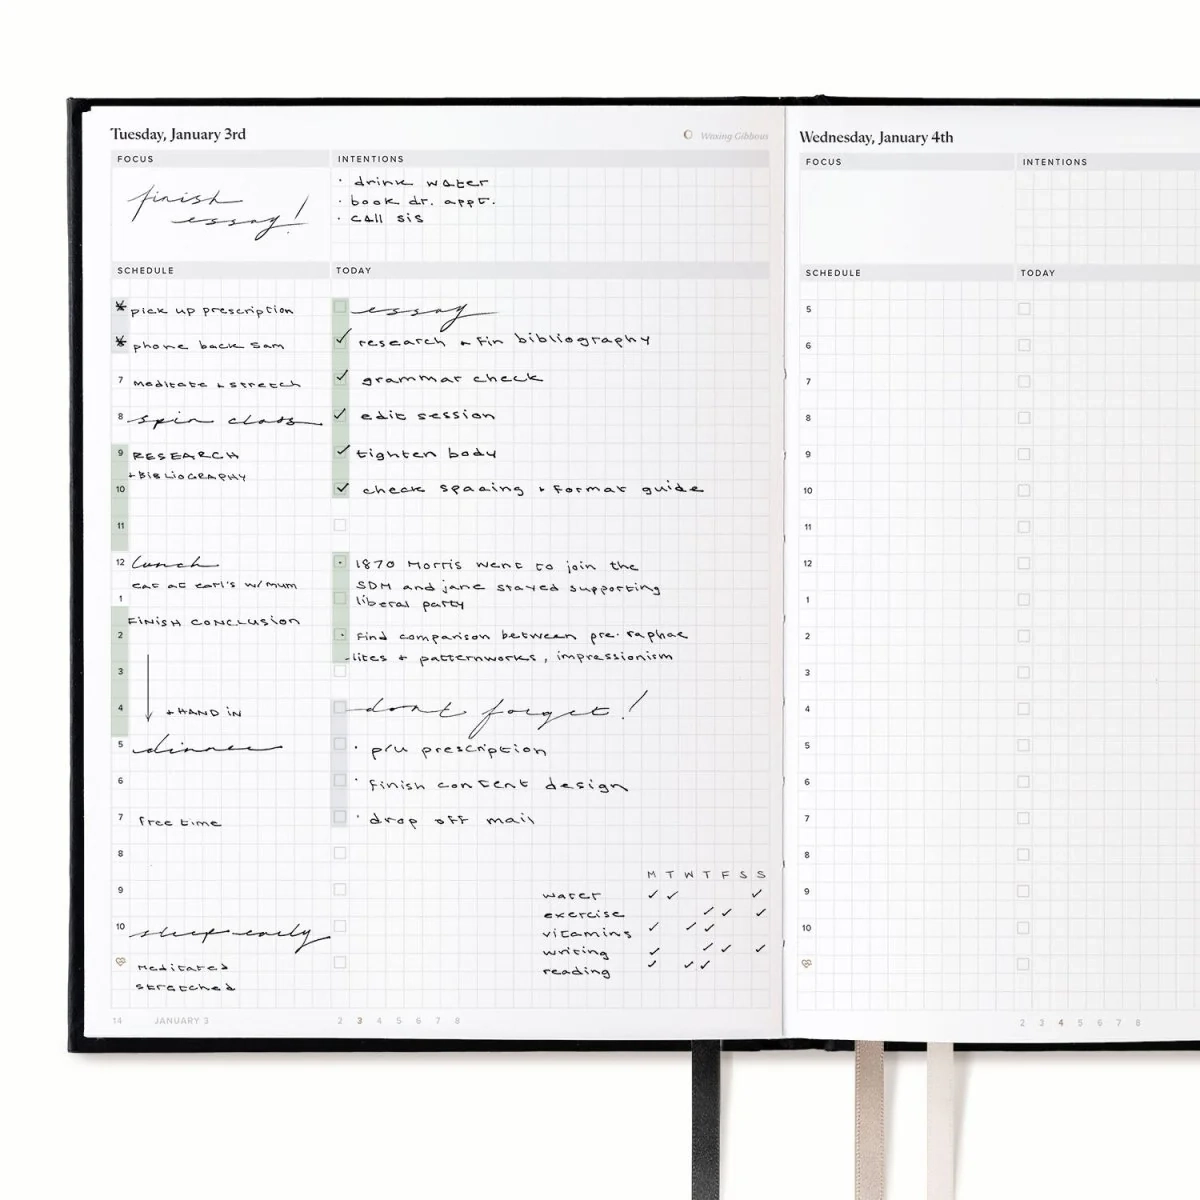 Tuesday, January 3rd
Waxing Gibbous
FOCUS
finish
essay!
INTENTIONS
· drink water
· book dr. appt.
· call sis
SCHEDULE
* pick up prescription
* phone back sam
7 Meditate + stretch
8 spin class
9 RESEARCH
+ BIBLIOGRAPHY
10
11
12 lunch
eat at earl's w/ mum
1
FINISH CONCLUSION
2
3
4 + HAND IN
5 dinner
6
7 free time
8
9
10 sleep early
Meditated
stretched
TODAY
essay
✓ research + fin bibliography
✓ grammar check
✓ edit session
✓ tighten body
✓ check spacing + format guide
· 1870 Morris went to join the
SDM and jane stayed supporting
liberal party
· find comparison between pre-raphae
-lites + patternworks, impressionism
dont forget!
· p/u prescription
· finish content design
· drop off mail
M T W T F S S
water ✓ ✓ ✓
exercise ✓ ✓ ✓
vitamins ✓ ✓ ✓
writing ✓ ✓ ✓ ✓
reading ✓ ✓ ✓
14 JANUARY 3
2 3 4 5 6 7 8
Wednesday, January 4th
FOCUS
INTENTIONS
SCHEDULE
TODAY
5
6
7
8
9
10
11
12
1
2
3
4
5
6
7
8
9
10
2 3 4 5 6 7 8